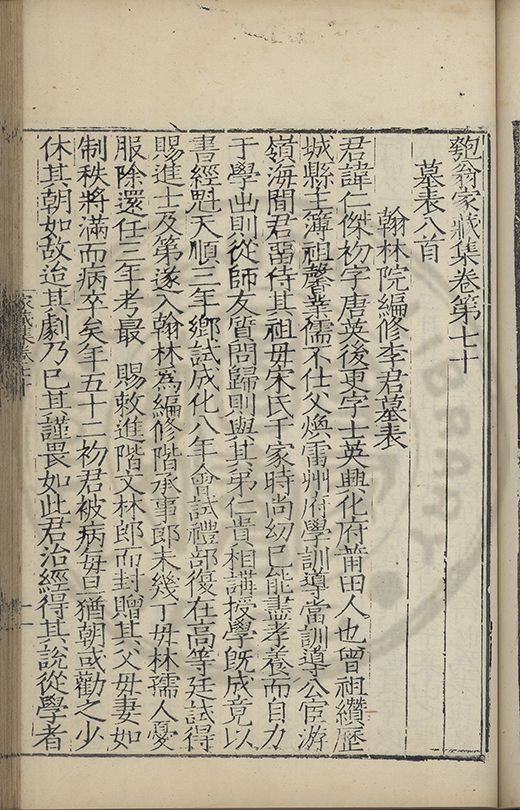 匏翁家藏集卷第七十
墓表八首
翰林院編修李君墓表
君諱仁傑初字唐英後更字士英興化府莆田人也曾祖纘歷
城縣主簿祖馨業儒不仕父煥雷州府學訓導當訓導公宦游
嶺海間君留侍其祖母宋氏于家時尚幼已能盡孝養而自力
于學出則從師友質問歸則與其弟仁貴相講授學旣成竟以
書經魁天順三年鄉試成化八年會試禮部復在高等廷試得
賜進士及第遂入翰林爲編修階承事郎未幾丁母林孺人憂
服除還任三年考最 賜敕進階文林郎而封贈其父母妻如
制秩將滿而病卒矣年五十二初君被病每旦猶朝或勸之少
休其朝如故迨其劇乃已其謹畏如此君治經得其說從學者
家藏集卷七十
一